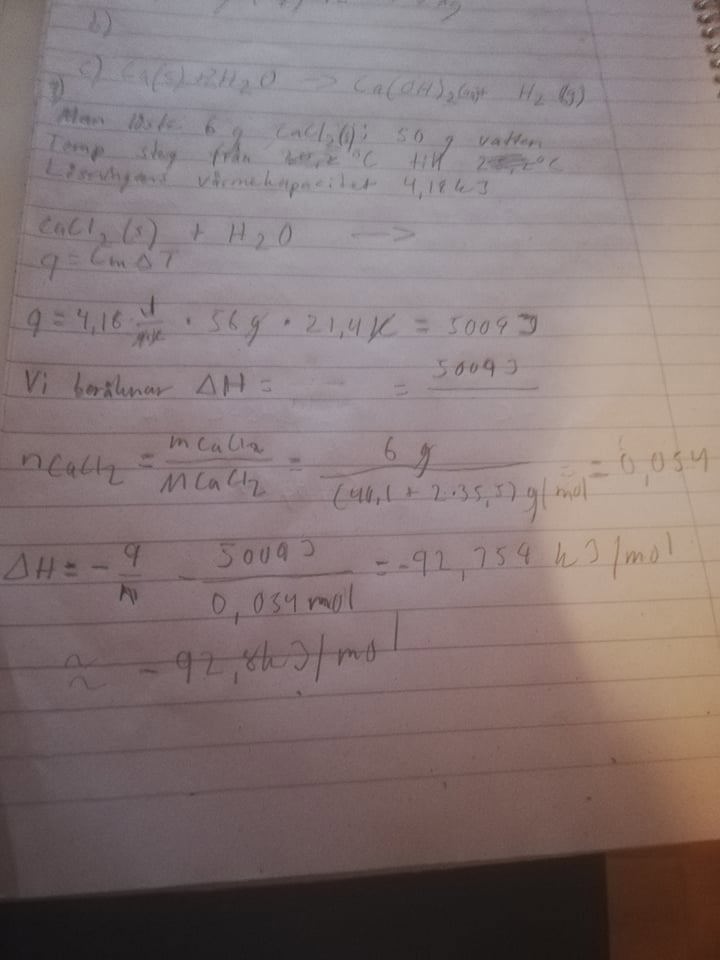 b)
c) Ca(s)+2H2O -> Ca(OH)2(aq)+ H2 (g)
Man löste 6 g CaCl2(s) i 50 g vatten
Temp steg från °C till °C
Lösningens värmekapacitet 4,18 kJ
CaCl2(s) + H2O ->
q = CmΔT
q = 4,18 J/gK · 56g · 21,4K = 5009J
Vi beräknar ΔH = = 5009J
nCaCl2 = mCaCl2/MCaCl2 = 6 g/(40,1 + 2·35,5) g/mol = 0,054
ΔH = - q/n - 5009J/0,054 mol = -92,759 kJ/mol
≈ -92,8kJ/mol